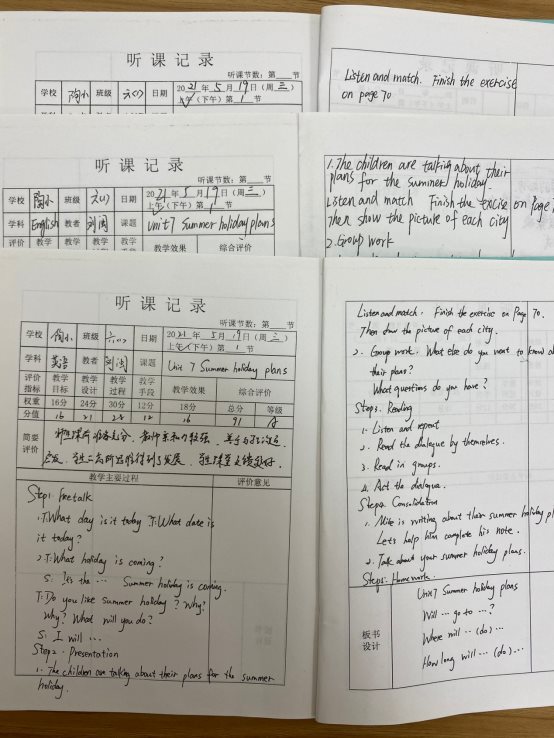 听课记录
听课节数：第 节
学校 陶小 班级 六(1) 日期 2021年5月19日（周三）
上午（下午）第1节
Listen and match. Finish the exercise
on page 70
听课记录
听课节数：第 节
学校 陶小 班级 六(1) 日期 2021年5月19日（周三）
上午（下午）第1节
学科 English 教者 刘闯 课题 Unit 7 Summer holiday plans
评价 教学 教学 教学 教学 教学效果 综合评价
1. The children are talking about their
plans for the summer holiday.
Listen and match Finish the excise on Page
Then show the picture of each city
2. Group work
听课记录
听课节数：第 节
学校 陶小 班级 六(1) 日期 2021年5月19日（周三）
上午（下午）第1节
学科 英语 教者 刘闯 课题 Unit 7 Summer holiday plans
评价指标 教学目标 教学设计 教学过程 教学手段 教学效果 综合评价
权重 16分 24分 30分 12分 18分 总分 等级
分值 16 21 12 16 91 A
简要评价
教学主要过程 评价意见
Step1. Freetalk
1. T: What day is it today T: What date is
it today?
2 T: What holiday is coming?
S: It's the ... Summer holiday is coming.
T: Do you like summer holiday? Why?
Why? What will you do?
S: I will ...
Step2. Presentation
1. The children are talking about their plans for the summer
holiday.
Listen and match. Finish the exercise on Page 70.
Then show the picture of each city.
2. Group work. What else do you want to know ab
their plans?
What questions do you have?
Step3. Reading
1. Listen and repeat
2. Read the dialogue by themselves.
3. Read in groups.
4. Act the dialogue.
Step4 Consolidation
1. Mike is writing about their summer holiday pl
Lets help him complete his note.
2. Talk about your summer holiday plans.
Step5. Homework.
板书设计
Unit 7 Summer holiday plans
Will ... go to ...?
Where will ... (do) ...
How long will ... (do) ...